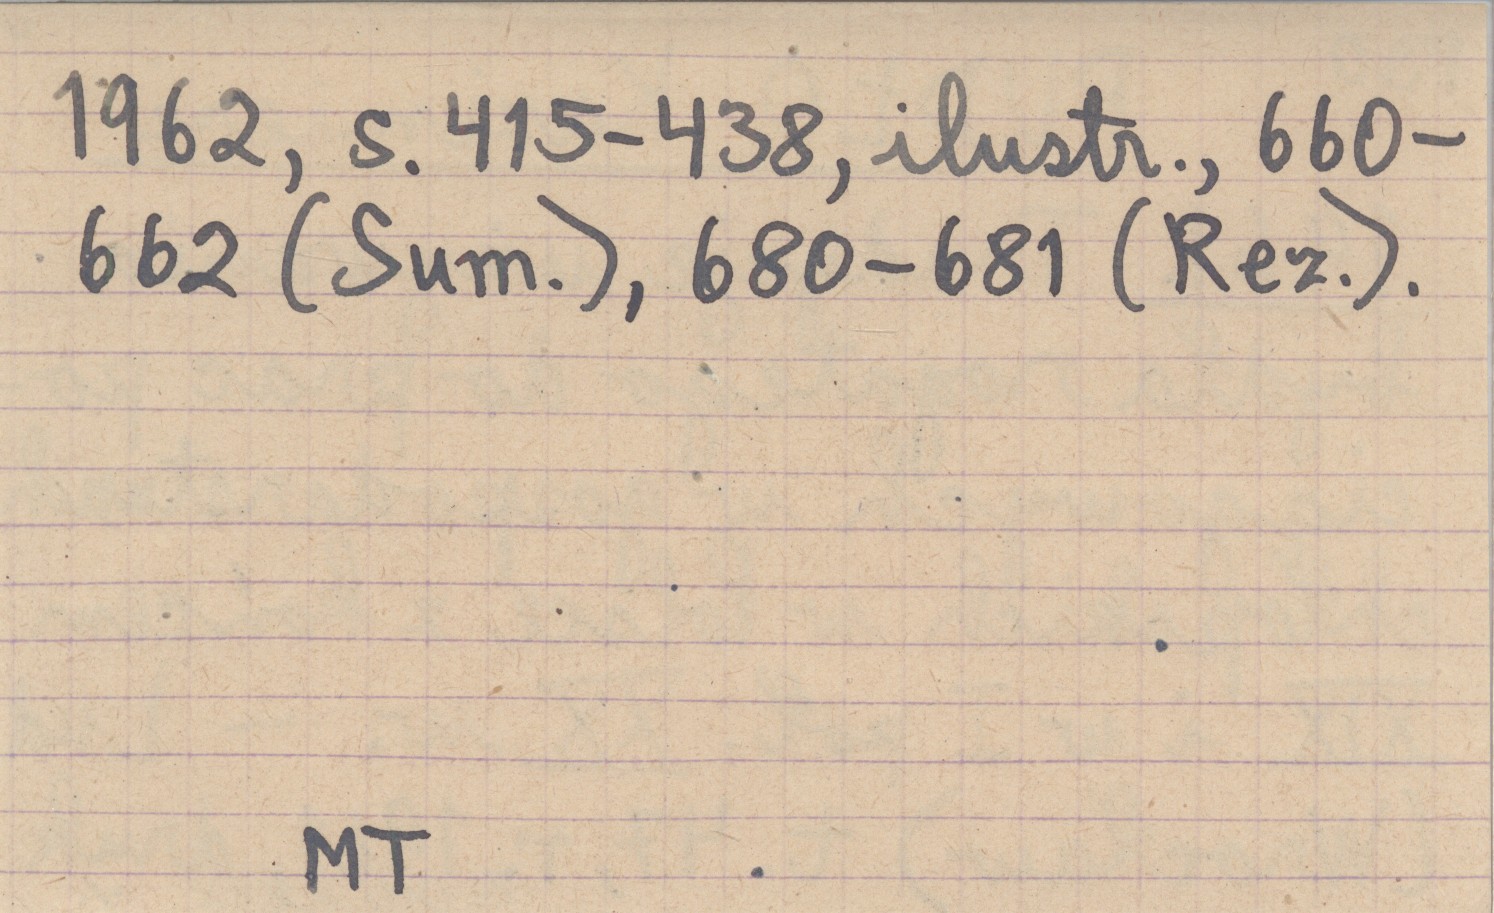 1962, s. 415-438, ilustr., 660-
662 (Sum.), 680-681 (Rez.).
MT